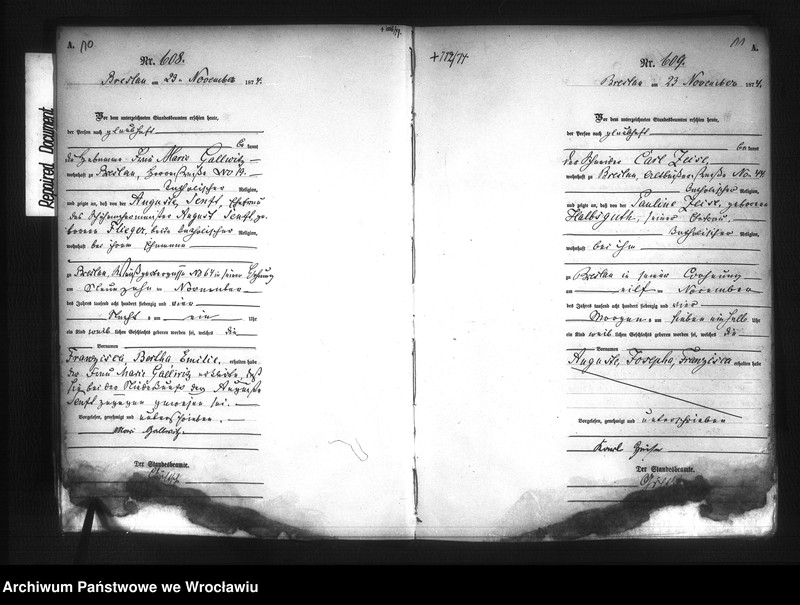 A. 110
Nr. 608.
Breslau am 23. November 1874.
Vor dem unterzeichneten Standesbeamten erschien heute,
der Person nach glaubhaft
be kannt
die Hebamme Frau Marie Gallwitz
wohnhaft zu Breslau, No 19.
katholischer Religion,
und zeigte an, daß von der Auguste Senft, Ehefrau
des August Senft, ge-
borene Flieger, beide katholischer Religion,
wohnhaft bei ihrem Ehemanne
zu Breslau, No 64 in seiner Wohnung
am November
des Jahres tausend acht hundert siebenzig und vier
Nachts um ein Uhr
ein Kind weib lichen Geschlechts geboren worden sei, welches die
Vornamen
Franzisca, Bertha Emilie, erhalten habe
Die Frau Marie Gallwitz erklärte, daß
sie bei der Niederkunft der Auguste
Senft zugegen gewesen sei.
Vorgelesen, genehmigt und unterschrieben.
Mari Gallwitz
Der Standesbeamte.
Repaired Document
+ 112/74
111 A.
Nr. 609.
Breslau am 23 November 1874.
Vor dem unterzeichneten Standesbeamten erschien heute,
der Person nach glaubhaft
be kannt
der Schneider Carl
wohnhaft zu Breslau, No. 44
katholischer Religion,
und zeigte an, daß von der Pauline geborene
Halbsguth, seiner Ehefrau,
katholischer Religion,
wohnhaft bei ihm
zu Breslau in seiner Wohnung
am eilf ten November
des Jahres tausend acht hundert siebenzig und vier
Morgens um sieben ein halb Uhr
ein Kind weib lichen Geschlechts geboren worden sei, welches die
Vornamen
Auguste, Josepha, Franzisca erhalten habe
Vorgelesen, genehmigt und unterschrieben
Karl
Der Standesbeamte.
Archiwum Państwowe we Wrocławiu